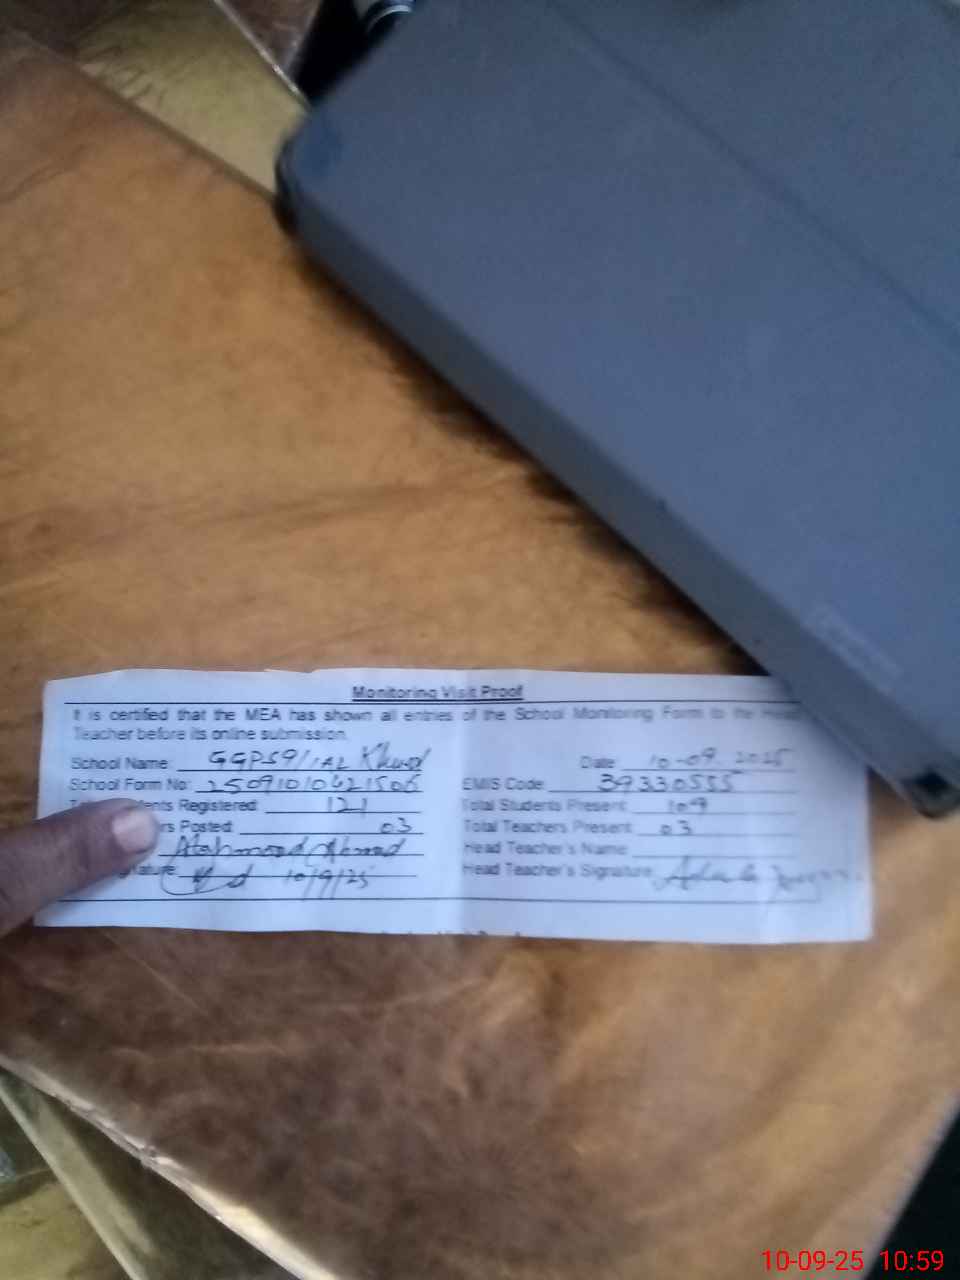 Monitoring Visit Proof
It is certified that the MEA has shown all entries of the School Monitoring Form to the Head
Teacher before its online submission.
School Name: GGPS 91/1AL Khurd Date: 10-09-2025
School Form No: 25091010621506 EMIS Code: 39330555
ents Registered: 121 Total Students Present: 109
rs Posted: 03 Total Teachers Present: 03
Mahmood Ahmad Head Teacher's Name
nature: 10/9/25 Head Teacher's Signature:
10-09-25 10:59